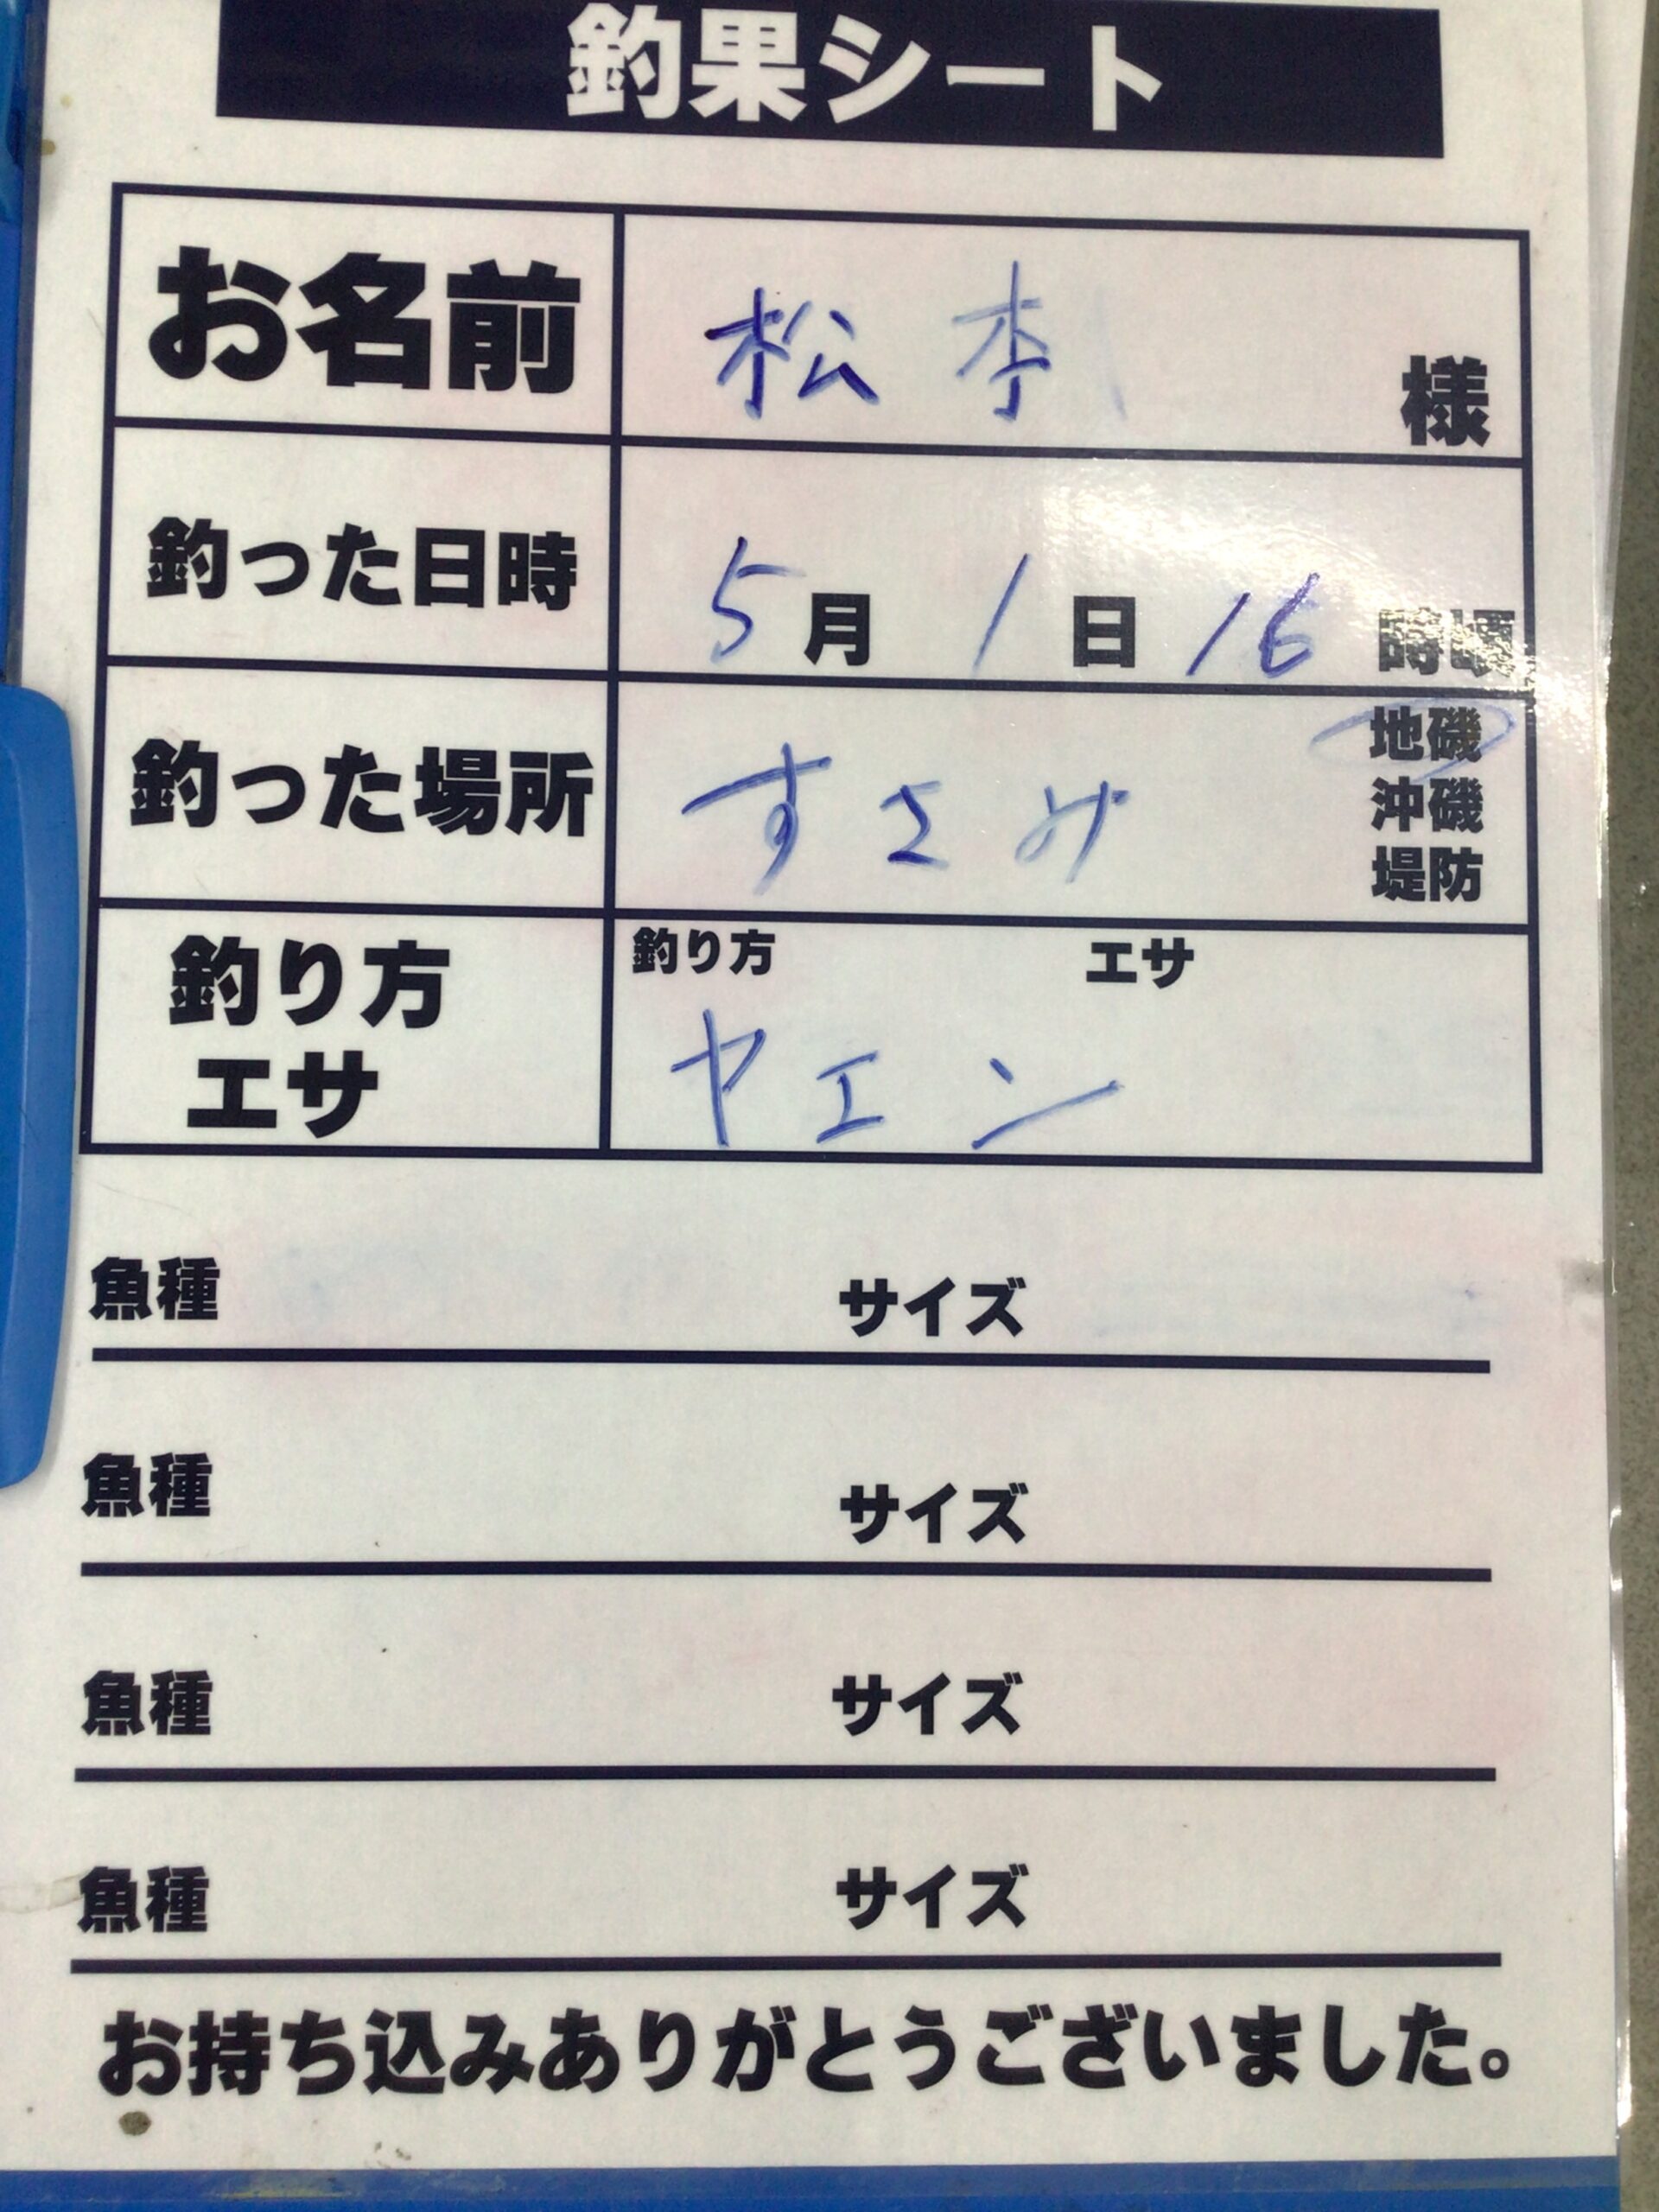 釣果シート
お名前 松本 様
釣った日時 5月1日16時頃
釣った場所 すさみ 地磯
沖磯
堤防
釣り方 エサ
釣り方
エサ
ヤエン
魚種 サイズ
魚種 サイズ
魚種 サイズ
魚種 サイズ
お持ち込みありがとうございました。